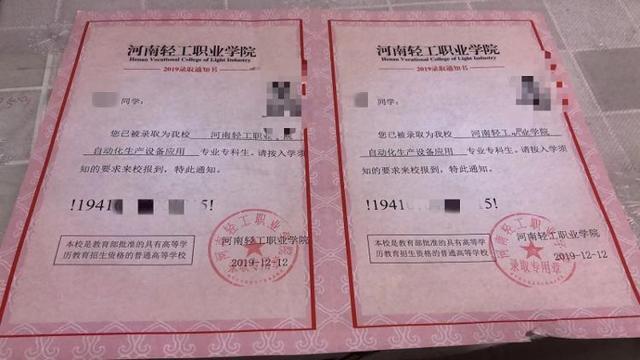 河南轻工职业学院
Henan Vocational College of Light Industry
2019录取通知书
同学:
您已被录取为我校 河南轻工职业
自动化生产设备应用 专业专科生。请按入学须
知的要求来校报到，特此通知。
!1941 15!
本校是教育部批准的具有高等学
历教育招生资格的普通高等学校
河南轻工职业学院
2019-12-12
河南轻工职业学院
录取专用章
河南轻工职业学院
Henan Vocational College of Light Industry
2019录取通知书
同学:
您已被录取为我校 河南轻工 业学院
自动化生产设备应用 专业专科生。请按入学须
知的要求来校报到，特此通知。
!1941 5!
本校是教育部批准的具有高等学
历教育招生资格的普通高等学校
河南轻工职业学院
2019-12-12
河南轻工职业学院
录取专用章